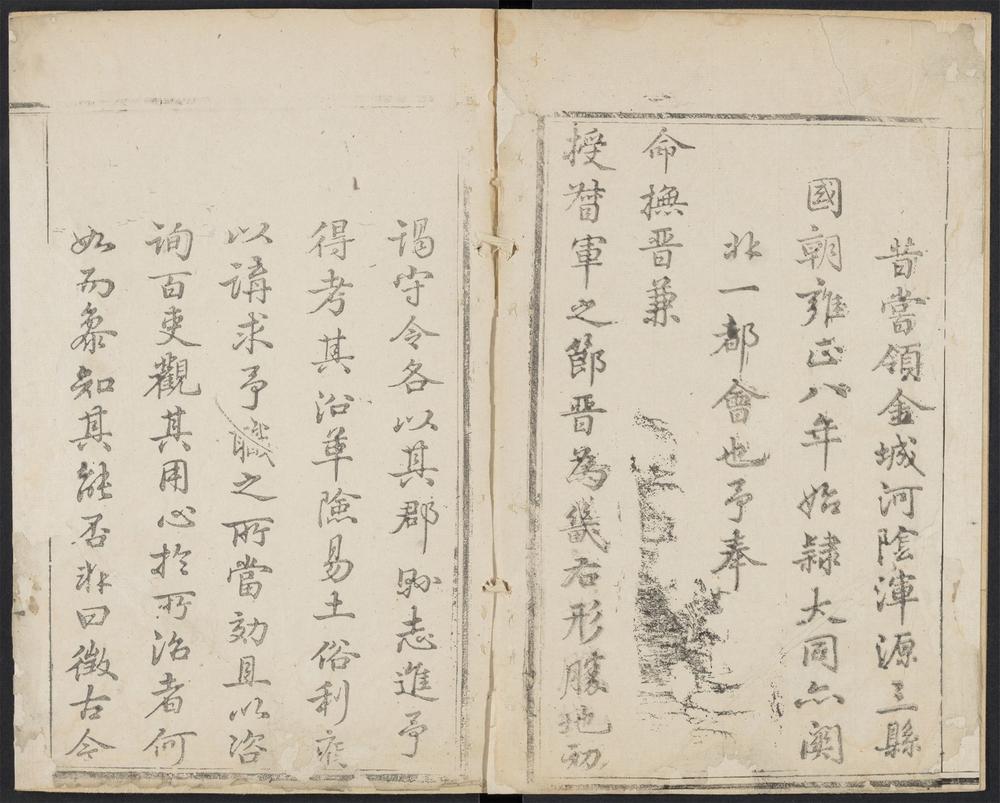 昔嘗領金城河陰渾源三縣
國朝雍正八年始隸大同亦関
北一都會也予奉
命撫晋兼
授督軍之節晋為畿右形勝地初
謁守令各以其郡縣志進予
得考其沿革險易土俗利病
以講求予職之所當効且以咨
詢百吏觀其用心於所治者何
如而叅知其能否非曰徴古今